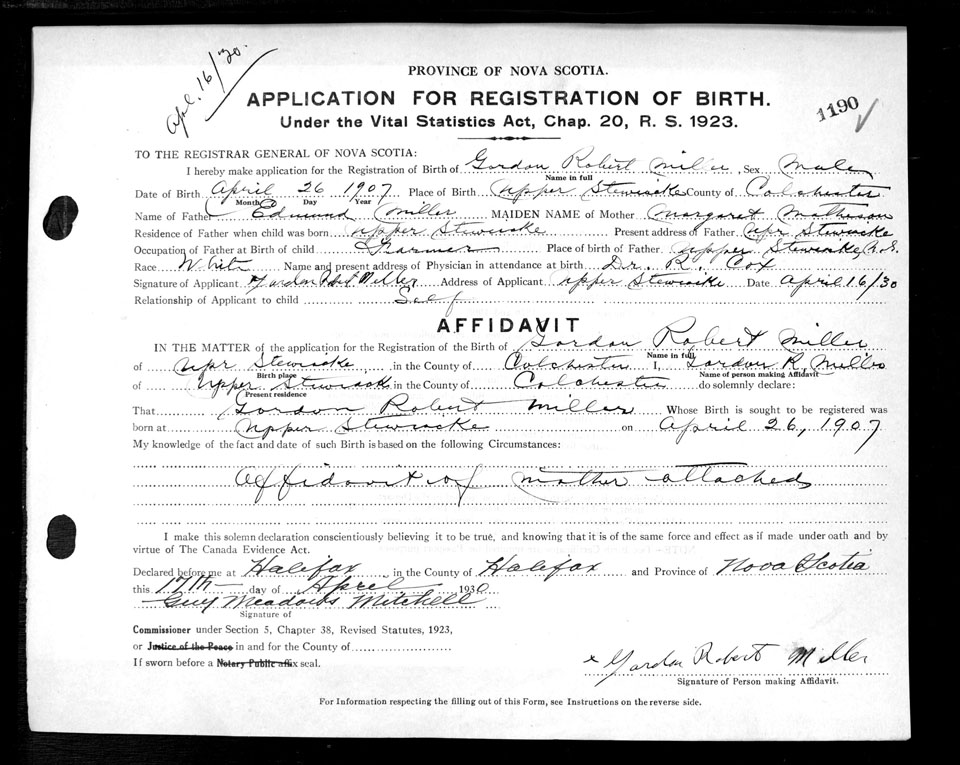 Apl. 16/30.
PROVINCE OF NOVA SCOTIA.
APPLICATION FOR REGISTRATION OF BIRTH.
1190
Under the Vital Statistics Act, Chap. 20, R. S. 1923.
TO THE REGISTRAR GENERAL OF NOVA SCOTIA:
I hereby make application for the Registration of Birth of Gordon Robert Miller, Sex Male
Name in full
Date of Birth April 26 1907 Place of Birth Upper Stewiacke County of Colchester
Month Day Year
Name of Father Edmund Miller MAIDEN NAME of Mother Margaret Matheson
Residence of Father when child was born Upper Stewiacke Present address of Father Upr Stewiacke
Occupation of Father at Birth of child Farmer Place of birth of Father Upper Stewiacke N.S.
Race White Name and present address of Physician in attendance at birth Dr. R. Cox
Signature of Applicant Gordon Robt Miller Address of Applicant Upper Stewiacke Date April 16/30
Relationship of Applicant to child Self
AFFIDAVIT
IN THE MATTER of the application for the Registration of the Birth of Gordon Robert Miller
Name in full
of Upr Stewiacke, in the County of Colchester I, Gordon R. Miller
Birth place Name of person making Affidavit
of Upper Stewiacke in the County of Colchester do solemnly declare:
Present residence
That Gordon Robert Miller Whose Birth is sought to be registered was
born at Upper Stewiacke on April 26, 1907
My knowledge of the fact and date of such Birth is based on the following Circumstances:
Affidavit of mother attached
I make this solemn declaration conscientiously believing it to be true, and knowing that it is of the same force and effect as if made under oath and by
virtue of The Canada Evidence Act.
Declared before me at Halifax, in the County of Halifax and Province of Nova Scotia
this 17th day of April 1930
Guy Meadows Mitchell
Signature of
Commissioner under Section 5, Chapter 38, Revised Statutes, 1923,
or Justice of the Peace in and for the County of
If sworn before a Notary Public affix seal.
x Gordon Robert Miller
Signature of Person making Affidavit.
For Information respecting the filling out of this Form, see Instructions on the reverse side.